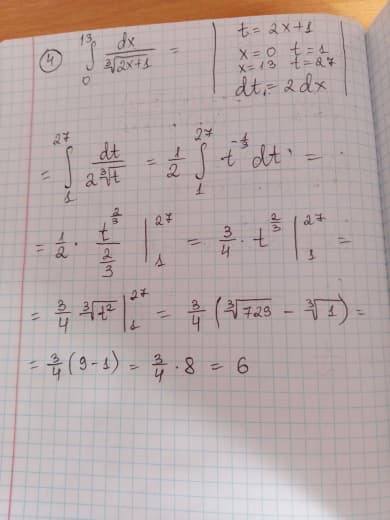 ④ ∫₀¹³ dx/∛(2x+1) = | t = 2x+1 |
x=0 t=1
x=13 t=27
dt = 2dx
= ∫₁²⁷ dt/(2∛t) = 1/2 ∫₁²⁷ t^(-1/3) dt =
= 1/2 · t^(2/3)/(2/3) |₁²⁷ = 3/4 · t^(2/3) |₁²⁷ =
= 3/4 ∛(t²) |₁²⁷ = 3/4 (∛729 − ∛1) =
= 3/4 (9−1) = 3/4 · 8 = 6